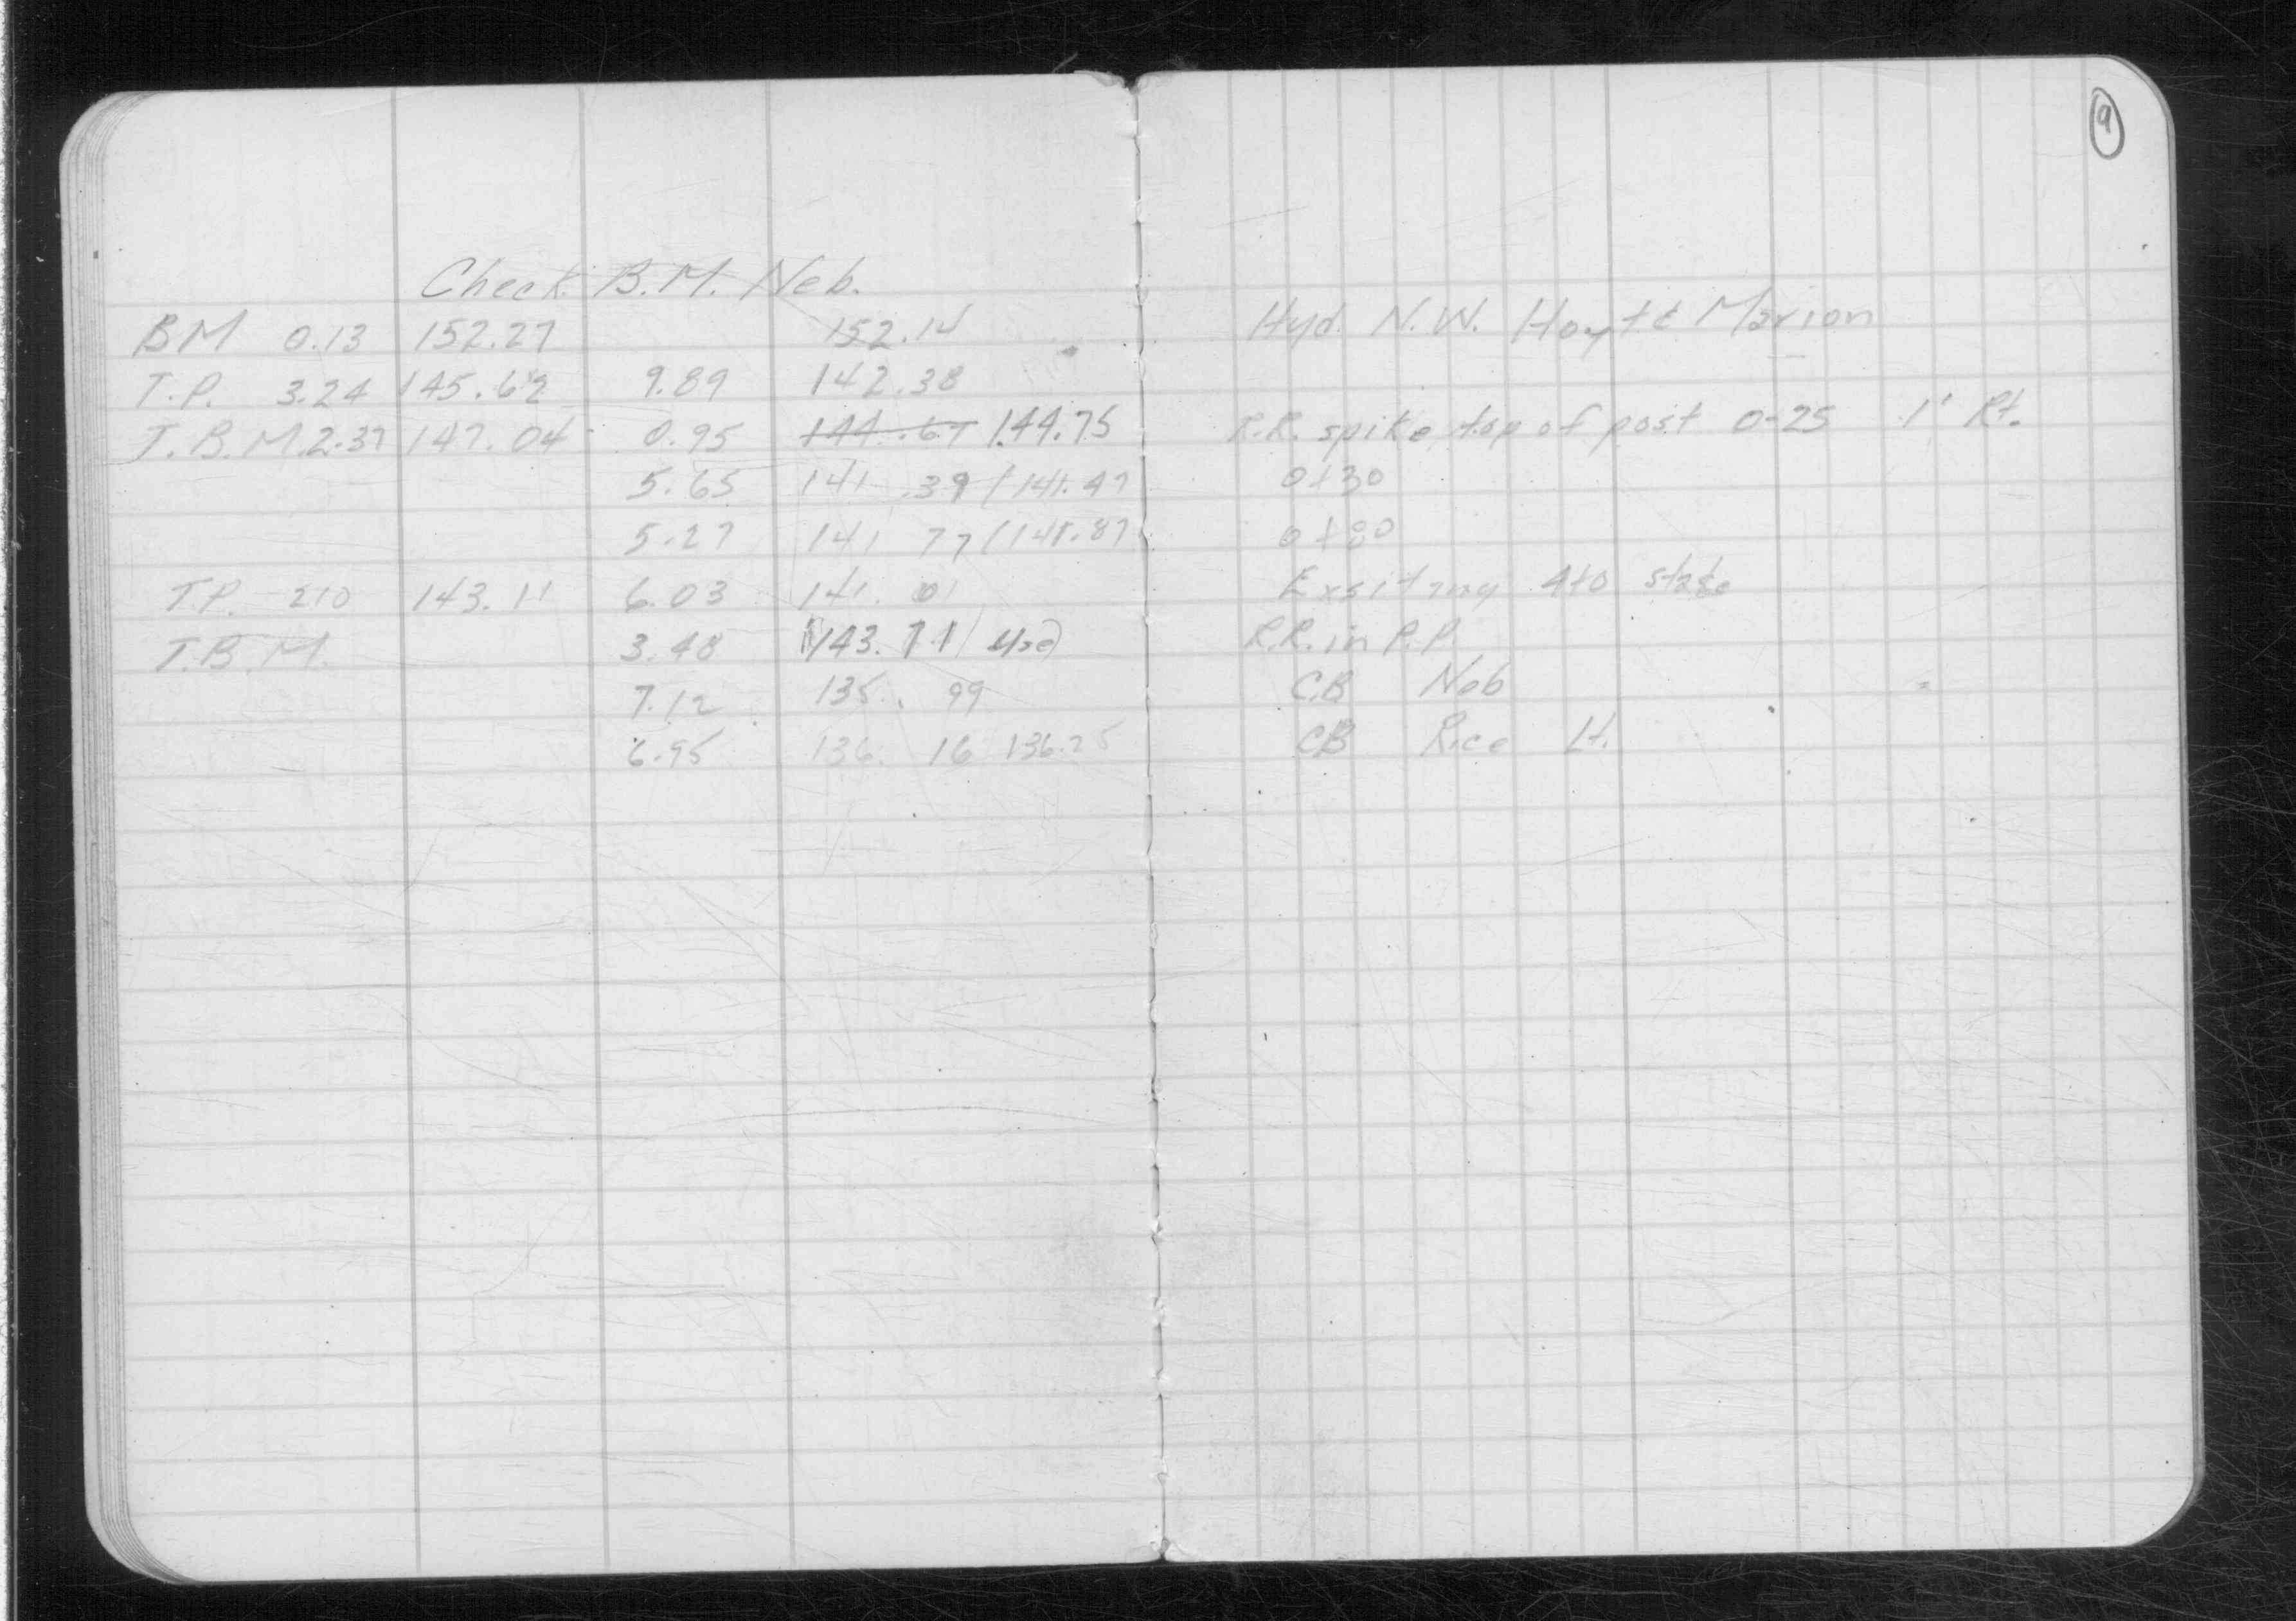 9
Check B.M. Neb.
BM 0.13 152.27 152.14 Hyd. N.W. Hoyt & Marion
T.P. 3.24 145.62 9.89 142.38
T.B.M. 2.37 147.04 0.95 144.67 144.75 R.R. spike top of post 0-25 1' Rt.
5.65 141.39 / 141.47 0+30
5.27 141 77 / 141.87 0+80
T.P. 210 143.11 6.03 141.01 Exsiting 4+0 stake
T.B.M. 3.40 143.71 Use R.R. in P.P.
7.12 135.99 CB Neb
6.95 136.16 136.25 CB Rice Lt.